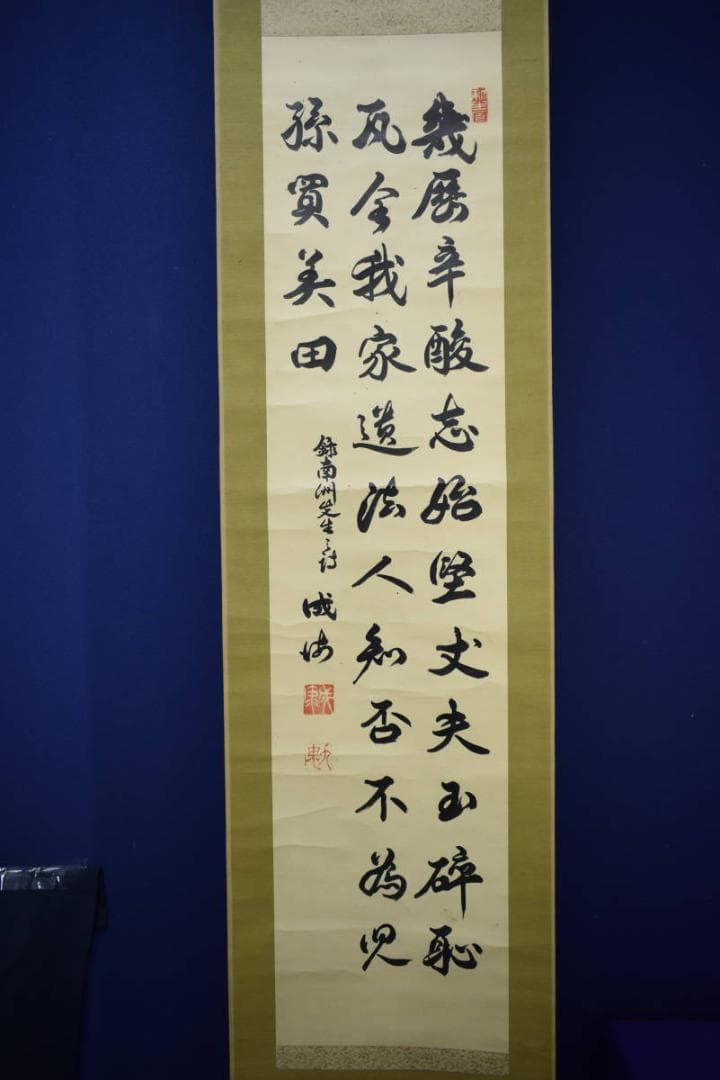 幾歴辛酸志始堅丈夫玉碎恥
瓦全我家遺法人知否不為児
孫買美田
録南洲先生之詩
成